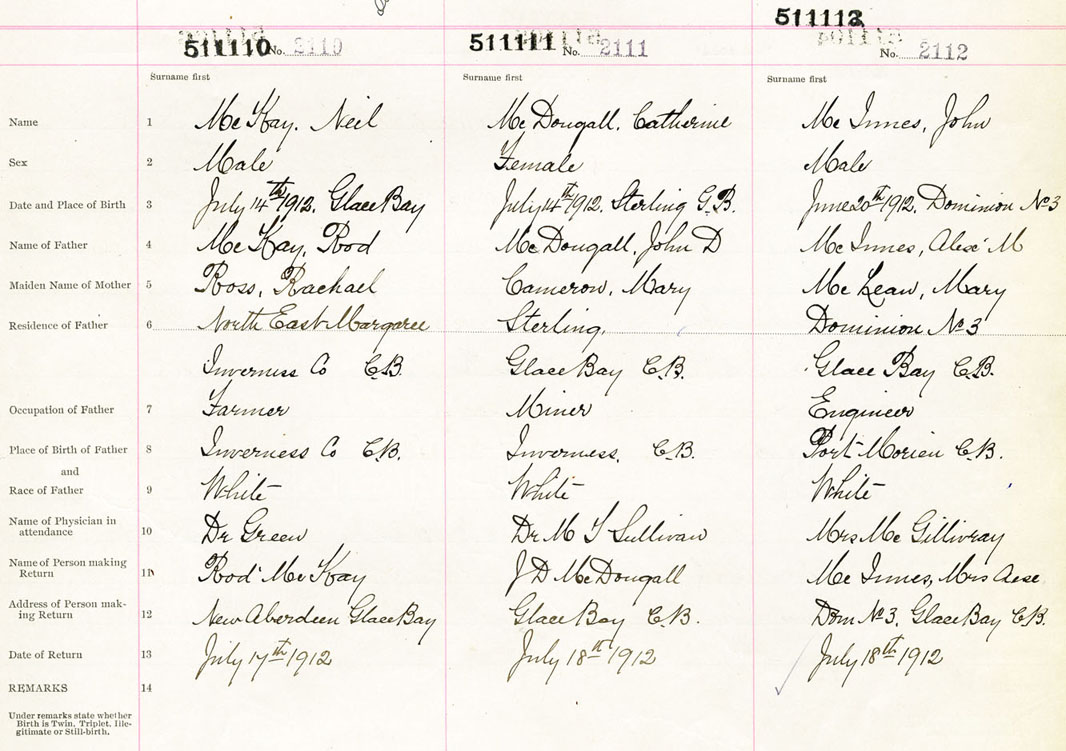 511110 No. 2110
511111 No. 2111
511112 No. 2112
Surname first Surname first Surname first
Name 1 Mc Kay, Neil Mc Dougall, Catherine Mc Innes, John
Sex 2 Male Female Male
Date and Place of Birth 3 July 14th 1912. Glace Bay July 14th 1912. Sterling G.B. June 20th 1912. Dominion No 3
Name of Father 4 Mc Kay, Rod Mc Dougall, John D Mc Innes, Alex' M
Maiden Name of Mother 5 Ross, Rachael Cameron, Mary Mc Lean, Mary
Residence of Father 6 North East Margaree Sterling, Dominion No 3
Inverness Co C.B. Glace Bay C.B. Glace Bay C.B.
Occupation of Father 7 Farmer Miner Engineer
Place of Birth of Father 8 Inverness Co C.B. Inverness, C.B. Port Morien C.B.
and
Race of Father 9 White White White
Name of Physician in
attendance 10 Dr Green Dr M T Sullivan Mrs Mc Gillivray
Name of Person making
Return 11 Rod' Mc Kay J D McDougall Mc Innes, Mrs Alex
Address of Person mak-
ing Return 12 New Aberdeen Glace Bay Glace Bay C.B. Dom No 3, Glace Bay C.B.
Date of Return 13 July 17th 1912 July 18th 1912 July 18th 1912
REMARKS 14
Under remarks state whether
Birth is Twin, Triplet, Ille-
gitimate or Still-birth.